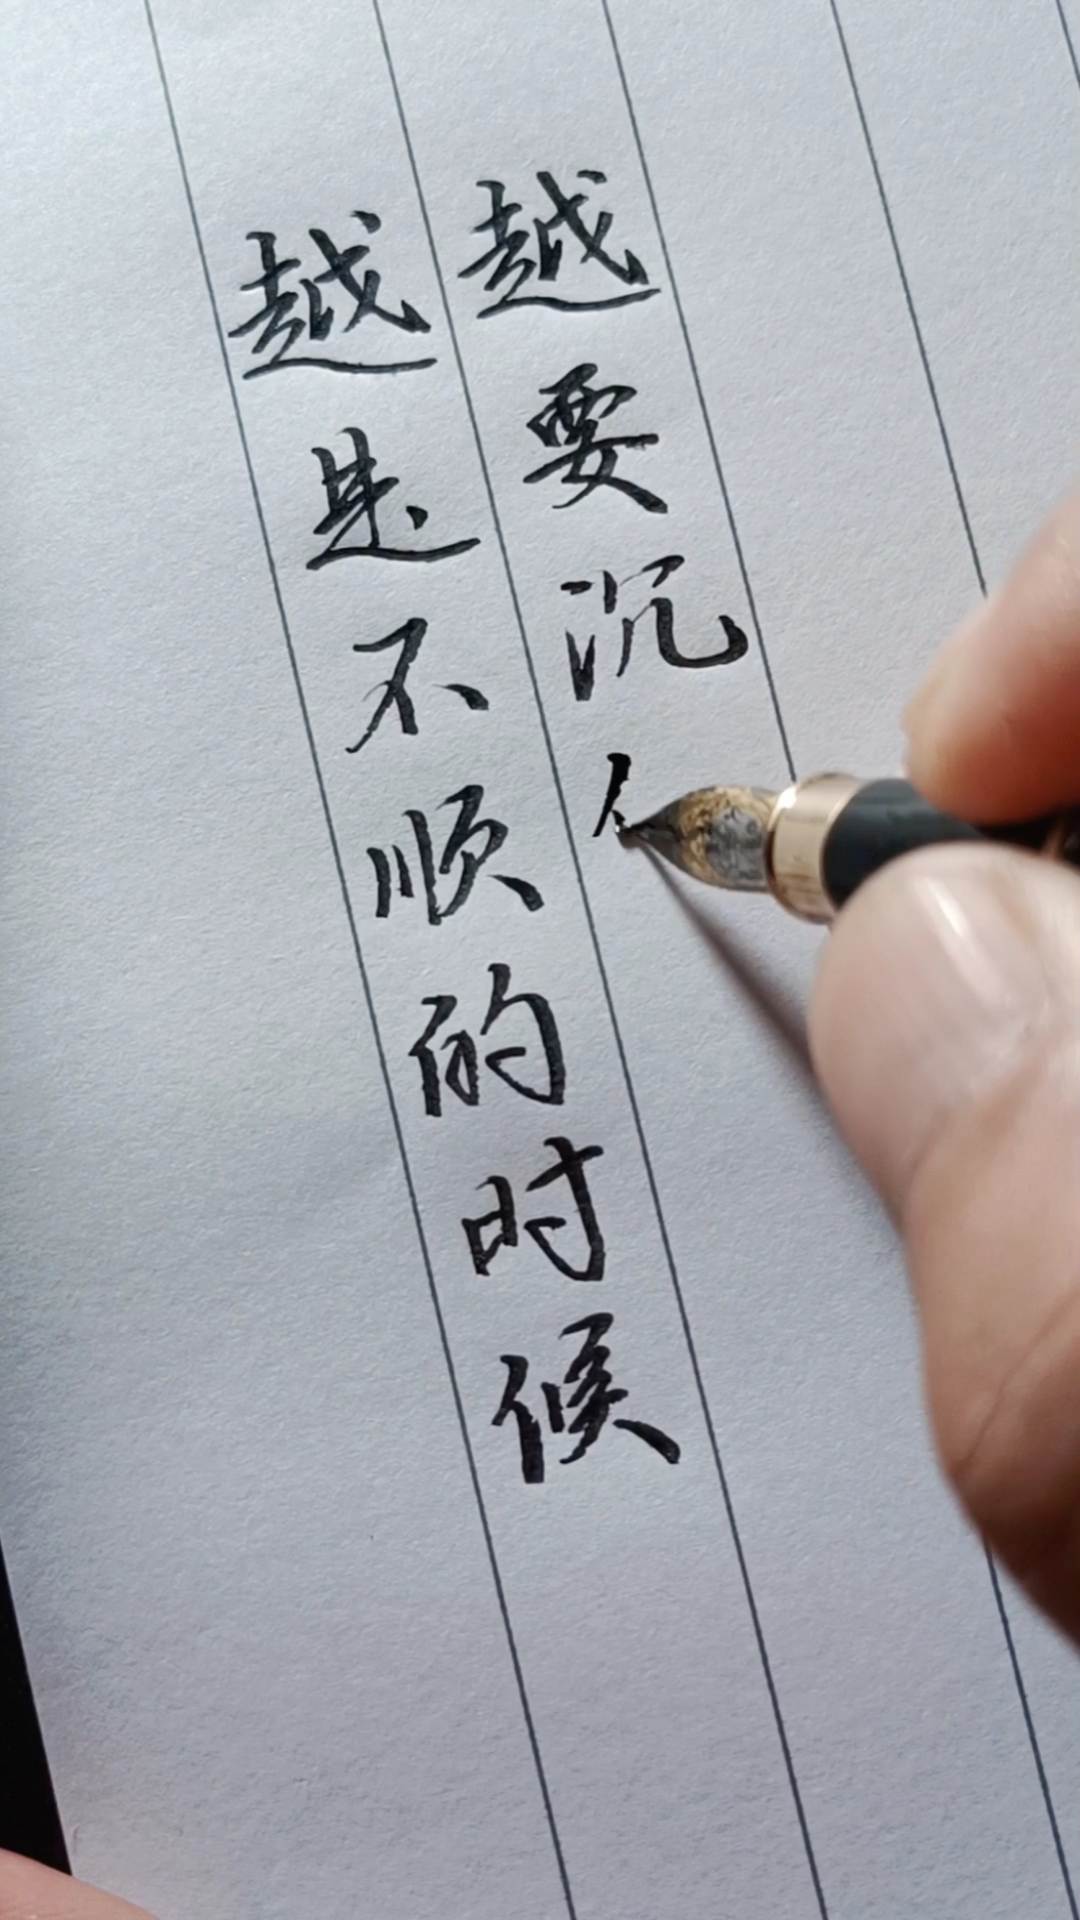 越是不顺的时候
越要沉